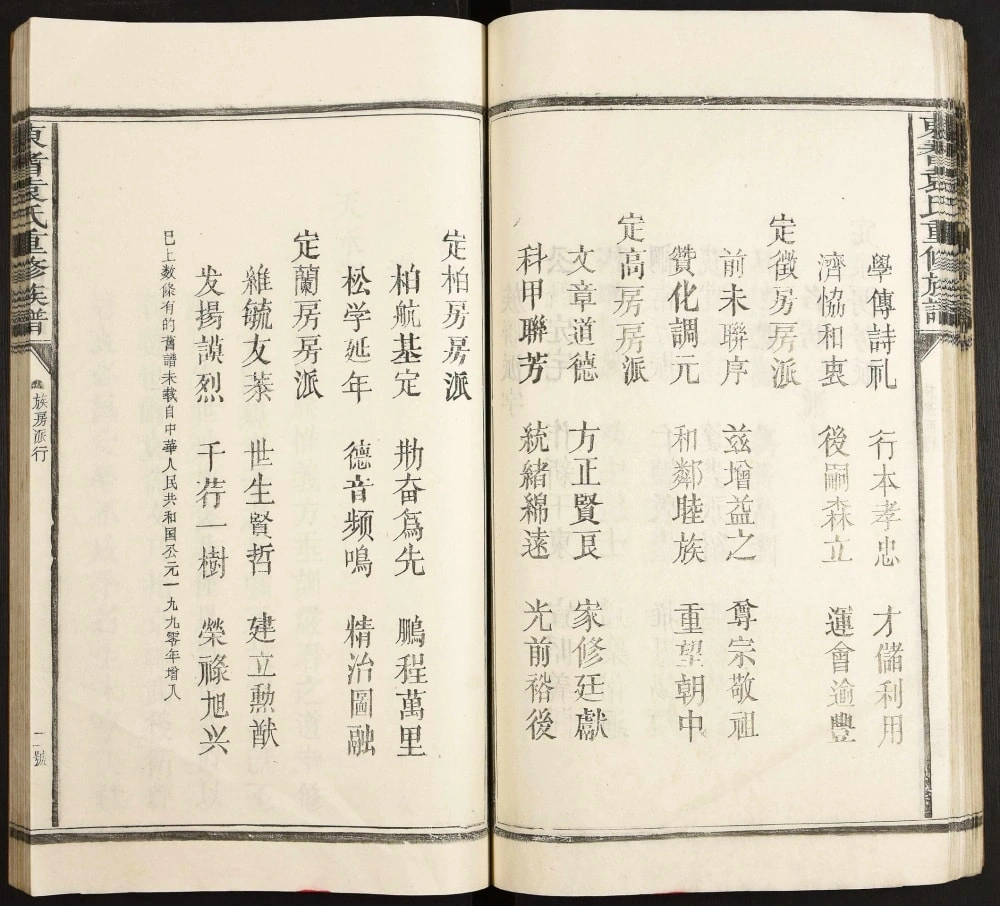 東㟷袁氏重修族譜
學傳詩礼 行本孝忠 才儲利用
濟協和衷 後嗣森立 運會逾豐
定徵房房派
前未聯序 茲增益之 尊宗敬祖
贊化調元 和鄰睦族 重望朝中
定高房房派
文章道德 方正賢良 家修廷獻
科甲聯芳 統緒綿遠 光前裕後
定柏房房派
柏航基定 勛奮爲先 鵬程萬里
松学延年 德音频鳴 精治圖融
定蘭房房派
維毓友恭 世生賢哲 建立勲猷
发揚謨烈 千荇一樹 榮祿旭兴
巳上数條有的旧譜未載自中華人民共和国公元一九九零年增入
東㟷袁氏重修族譜
族房派行
二號